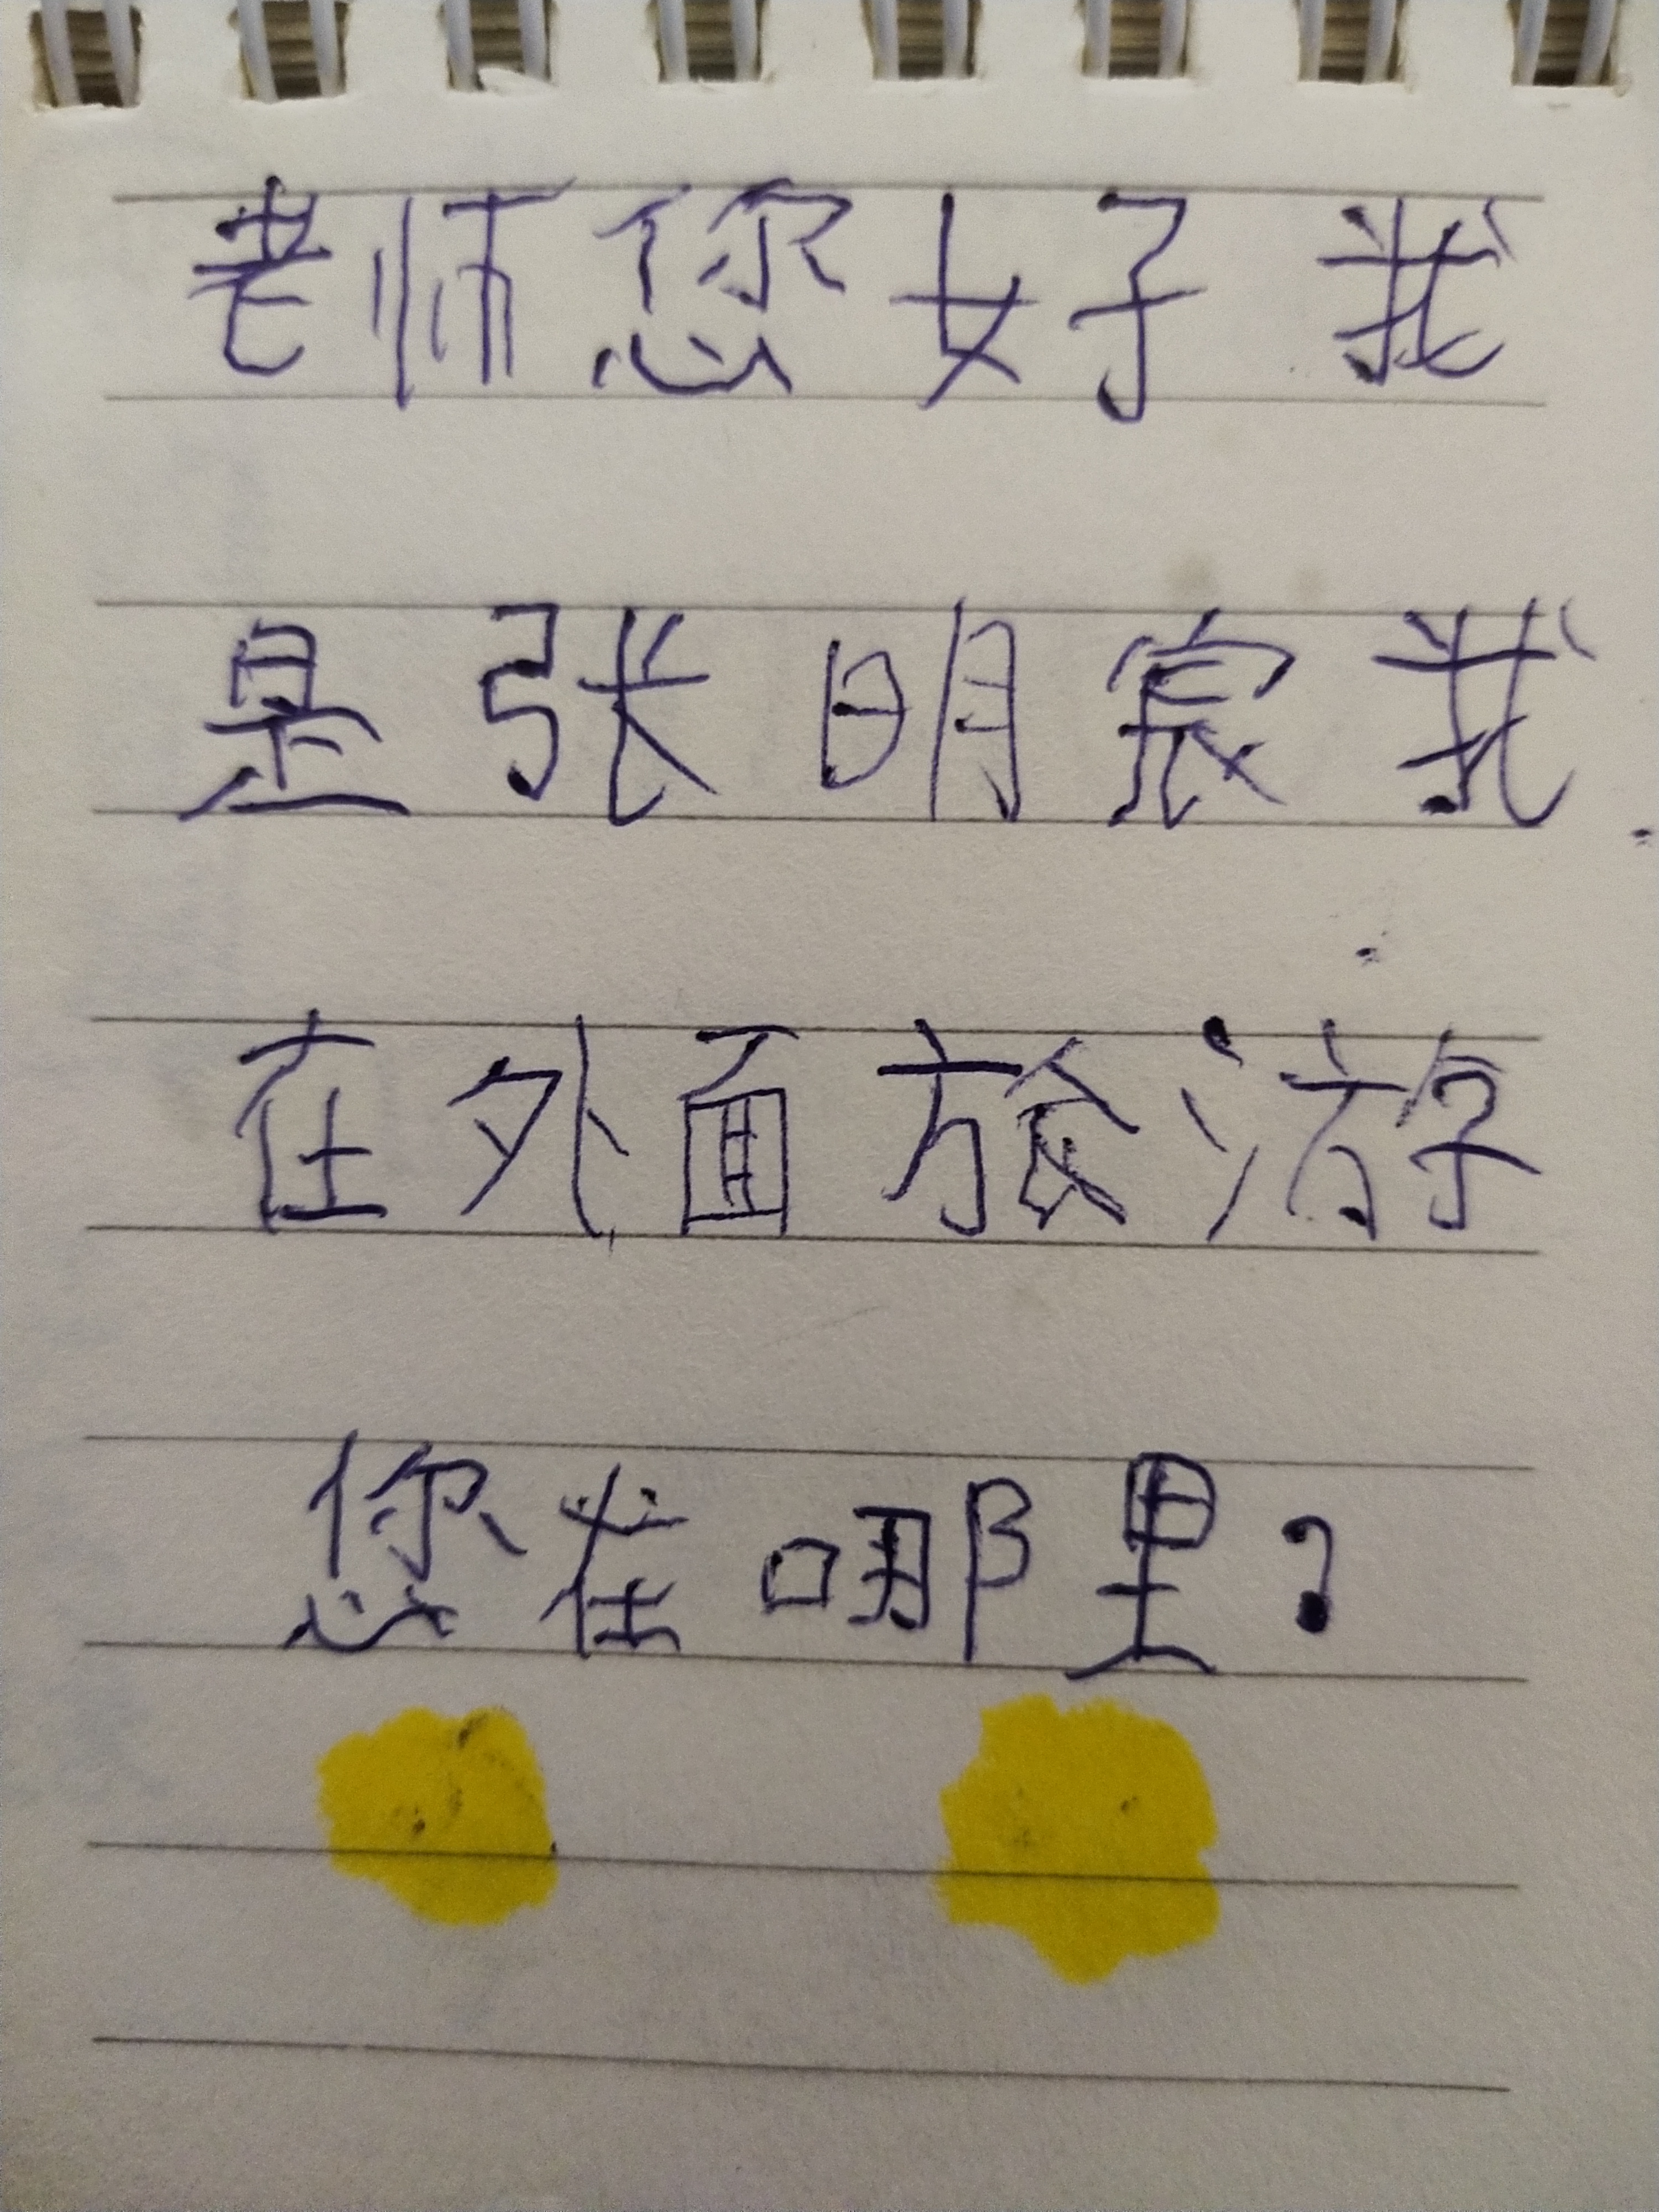 老师您好 我
是张明宸我
在外面旅游
您在哪里?